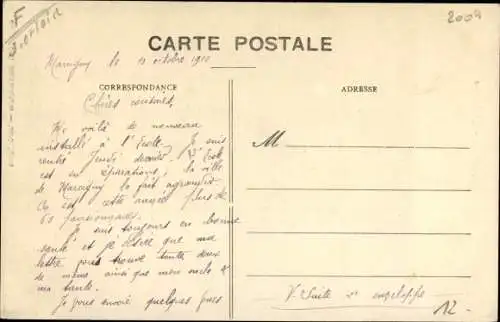 F
2004
CARTE POSTALE
Marcigny le 10 octobre 1910
CORRESPONDANCE
ADRESSE
Chères cousines,
Me voilà de nouveau
installé à l'Ecole. Je suis
rentré Jeudi dernier. L'Ecole
est en réparations, la ville
de Marcigny la fait agrandir.
On est cette année plus de
60 pensionnaires.
Je suis toujours en bonne
santé et j'espère que ma
lettre vous trouve toutes deux
de même ainsi que mon oncle et
ma tante.
Je vous envoie quelques vues
M
V. Suite s. enveloppe
12